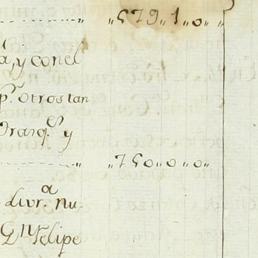 „ 579„ 1„ 0„ „
a, y con el
p.ʳ otros tan
Oranq.ˢ y
„ 750„ 0„ 0„ „
divr.ᵃ nu-
Felipe